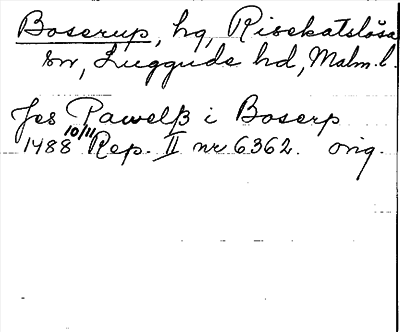 Boserup, hg, Risekatslösa
sn, Luggude hd, Malm. l.
Jes Pawelß i Boserp
1488 10/11 Rep. II nr 6362. orig.